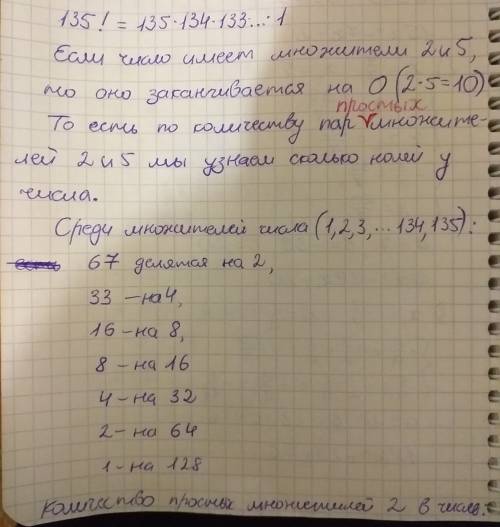 135! = 135·134·133·...·1
Если число имеет множители 2 и 5,
то оно заканчивается на 0 (2·5=10)
простых
То есть по количеству пар √ множите-
лей 2 и 5 мы узнаем сколько нолей у
числа.
Среди множителей числа (1,2,3,...134,135):
есть 67 делятся на 2,
33 – на 4,
16 – на 8,
8 – на 16
4 – на 32
2 – на 64
1 – на 128
Количество простых множителей 2 в числе: